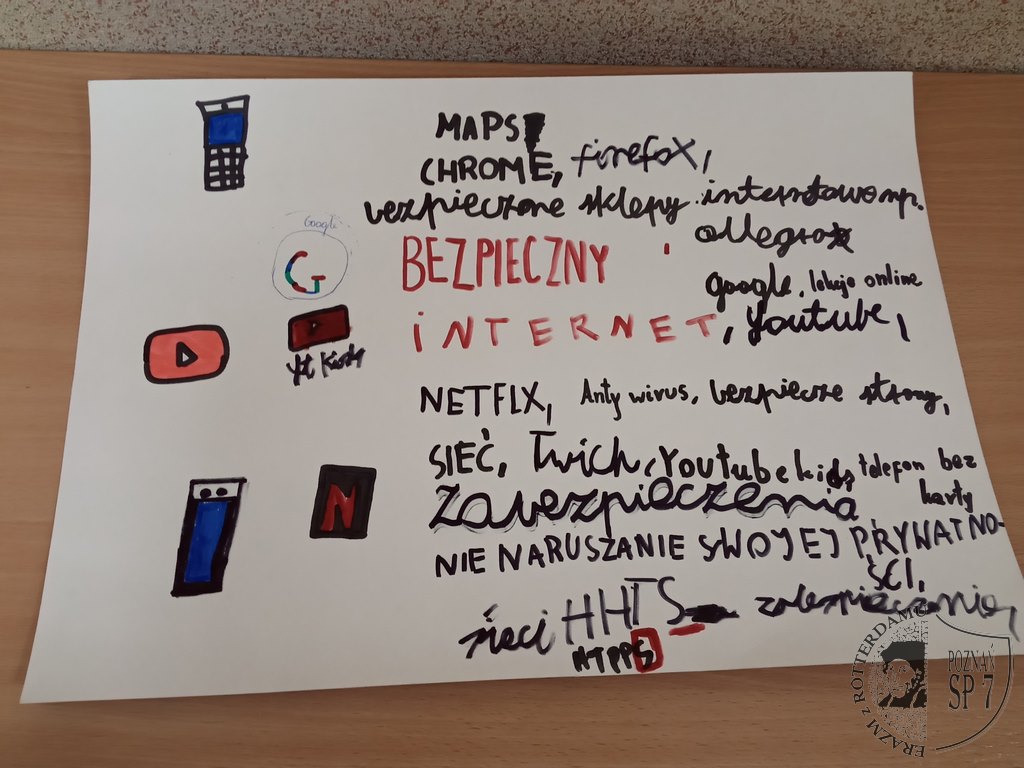 MAPS
CHROME, firefox,
bezpieczone sklepy internetowe np.
allegro
Google
G
BEZPIECZNY
google, lekcje online
INTERNET, Youtube,
Yt Kids
NETFIX, Anty wirus, bezpiecze strony,
SIEĆ, Twich, Youtube kids, telefon bez
karty
Zabezpieczenia,
N
NIE NARUSZANIE SWOJEJ PRYWATNO-
ŚCI,
sieci HHTS zabezpieczenia,
HTPPS
ERAZM z ROTTERDAMU
POZNAŃ
SP 7